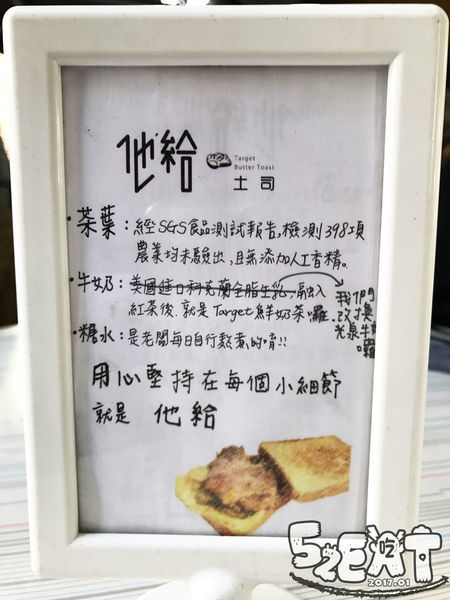 他給
Target
Butter Toast
土司
•茶葉：經SGS食品測試報告，檢測398項
農藥均未驗出，且無添加人工香精。
•牛奶：美國進口科克蘭全脂生乳，融入
紅茶後，就是Target鮮奶茶囉。
我們
改換
光泉牛奶
囉
•糖水：是老闆每日自行熬煮的唷!!
用心堅持在每個小細節
就是 他給
52EAT
吃
2017.01